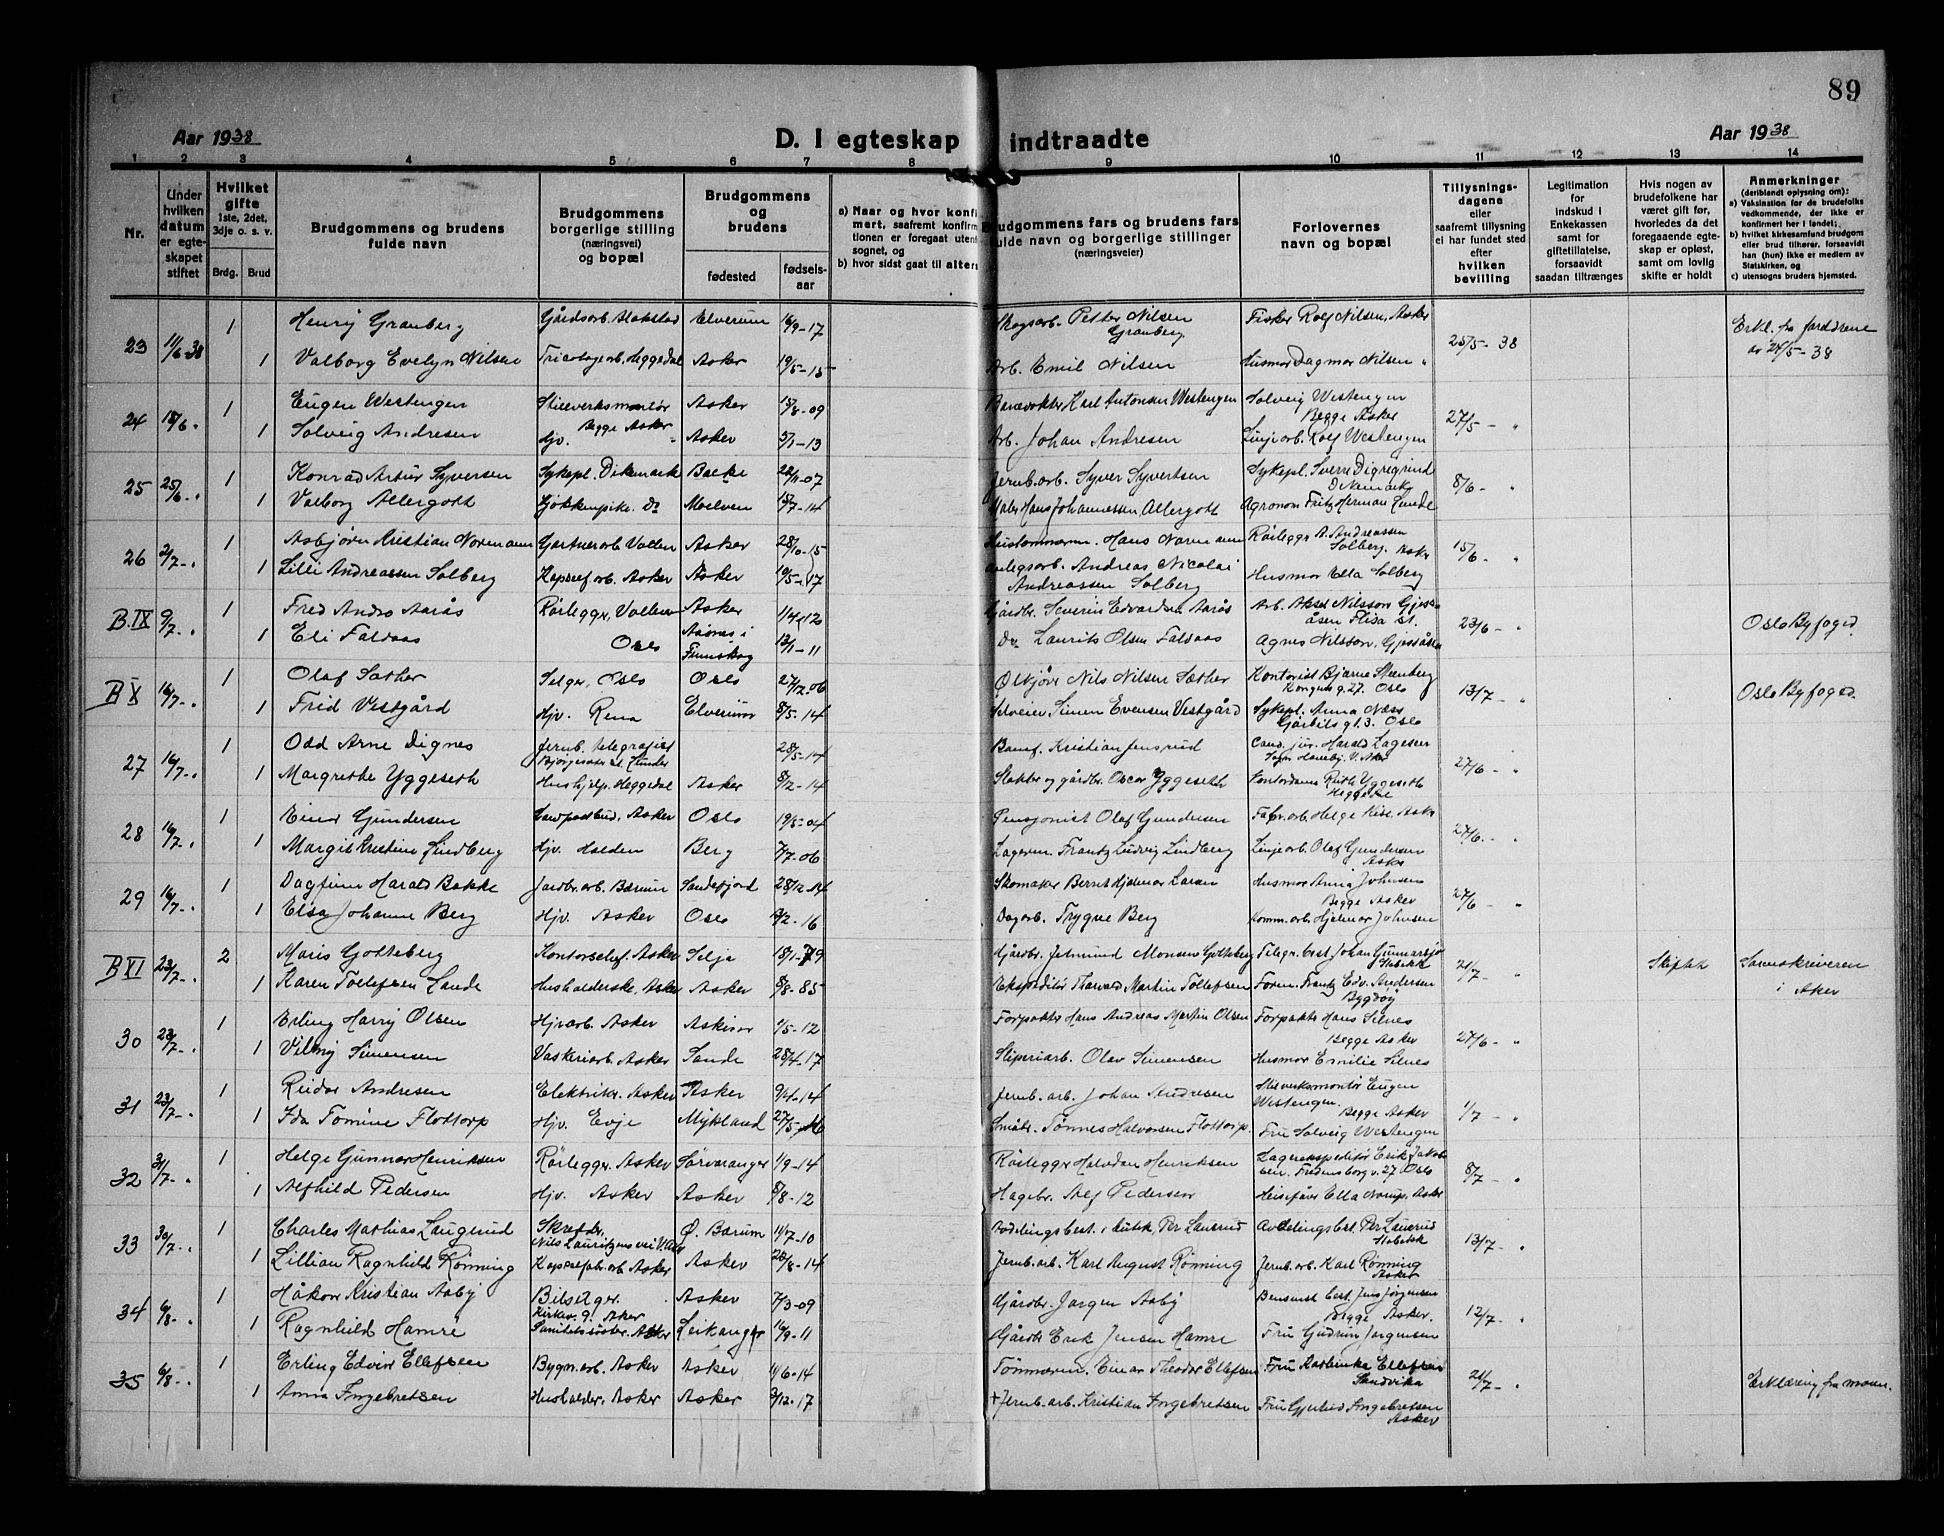 89
Aar 1938
D. I egteskap indtraadte
Aar 1938
1 2 3 4 5 6 7 8 9 10 11 12 13 14
Nr.
Under hvilken datum er egteskapet stiftet
Hvilket gifte 1ste, 2det, 3dje o. s. v.
Brdg. Brud
Brudgommens og brudens fulde navn
Brudgommens borgerlige stilling (næringsvei) og bopæl
Brudgommens og brudens
fødested fødselsaar
a) Naar og hvor konfi
mert, saafremt konfirm
tionen er foregaat utenf
sognet, og
b) hvor sidst gaat til alters
Brudgommens fars og brudens fars fulde navn og borgerlige stillinger (næringsveier)
Forlovernes navn og bopæl
Tillysningsdagene eller saafremt tillysning ei har fundet sted efter hvilken bevilling
Legitimation for indskud i Enkekassen samt for giftetillatelse, forsaavidt saadan tiltrænges
Hvis nogen av brudefolkene har været gift før, hvorledes da det foregaaende egteskap er opløst, samt om lovlig skifte er holdt
Anmerkninger (deriblandt oplysning om):
a) Vaksination for de brudefolks vedkommende, der ikke er konfirmert her i landet;
b) hvilket kirkesamfund brudgom eller brud tilhører, forsaavidt han (hun) ikke er medlem av Statskirken, og
c) utensogns bruders hjemsted.
23 11/6-38 1 Henry Granberg Gårdsarb. Elverum 16/9-17 Skogsarb. Petter Nilsen Granberg Fisker Rolf Nilsen, Asker 25/5-38 Erkl. fra foreldrene
1 Valborg Evelyn Nilsen Tricotagearb. Heggedal Asker 19/5-15 Arb. Emil Nilsen Husmor Dagmar Nilsen " av 24/5-38
24 18/6 " 1 Eugen Westengen Stillverksmontør Asker 15/8-09 Banevokter Karl Antonsen Westengen Solveig Westengen Begge Asker 27/5 - "
1 Solveig Andresen Hjv. Begge Asker Asker 5/1-13 Arb. Johan Andresen Linjearb. Rolf Westengen
25 25/6 " 1 Konrad Artur Syversen Sykepl. Dikemark Bække 22/11-07 Jernb.arb. Syver Syvertsen Sykepl. Sverre Digregrind Dikemark 8/6 - "
1 Valborg Allergott Kjøkkenpike. Do Moelven 15/7-14 Hans Johannessen Allergott Agronom Fritz Herman Lunde
26 2/7 " 1 Asbjørn Kristian Normann Gartnerarb. Vollen Asker 28/10-15 Hustømmerm. Hans Normann Rørleggr. A. Andreassen Solberg, Asker 15/6 "
1 Lilli Andreassen Solberg Kapselarb. Asker Asker 19/5-17 Anlegsarb. Andreas Nicolai Andreassen Solberg Husmor Ella Solberg
B. IX 9/7 " 1 Fred Andro Aarås Rørlegger, Vollen Asker 1/4-12 Gårdbr. Severin Edvardsen Aarås Arb. Aksel Nilsson Gjesåsen Flisa st. 23/6 - " Oslo Byfoged
1 Eli Faldaas Oslo Åsnes i Finnskog 13/1-11 Do Laurits Olsen Faldaas Agnes Nilsson, Gjesåsen
B X 16/7 " 1 Olaf Sæther Selger, Oslo Oslo 27/12-06 Ølkjører Nils Nilsen Sæther Kontorist Bjarne Stenberg Kongens g. 27. Oslo 13/7 - " Oslo Byfoged.
1 Frid Vestgård Hjv. Rena Elverum 8/5-14 Selveier Simen Evensen Vestgård Sykepl. Anna Næss Gjørbits gt. 3. Oslo
27 16/7 " 1 Odd Arne Dignes Jernb. telegrafist 28/5-14 Banf. Kristian Jensrud Cand. jur. Harald Lagesen V. Aker 27/6 - "
1 Margrethe Yggeseth Hushjelp. Heggedal Asker 8/12-14 Slakter og gårdbr. Oscar Yggeseth Kontordame Ruth Yggeseth Heggedal
28 16/7 " 1 Einar Gundersen Landpostbud, Asker Oslo 19/5-04 Pensjonist Olaf Gundersen Fabr.arb. Helge Kise. Asker 27/6 - "
1 Margit Kristine Lindberg Hjv. Halden Berg 7/7-06 Lagerm. Frantz Ludvig Lindberg Linjearb. Olaf Gundersen Asker
29 16/7 " 1 Dagfinn Harald Bakke Jordbr.arb. Bærum Sandefjord 28/12-14 Skomaker Bernt Hjelmar Larsen Husmor Anna Johnsen Begge Asker 27/6 - "
1 Elsa Johanne Berg Hjv. Asker Oslo 2/2-16 Dagarb. Trygve Berg Komm.arb. Hjelmar Johnsen
B XI 23/7 " 2 Maris Gotteberg Kontorschef, Asker Selje 18/1-79 Gårdbr. Jetmund Monsen Gotteberg Telegr.best. Johan Gunnarsjø Stabekk 21/7 - " Skiftet Sorenskriveren
1 Karen Tollefsen Lande Husholderske, Asker Asker 8/8-85 Ekspeditør Thorvald Martin Tollefsen Form. Frantz Edv. Andersen Bygdøy i Aker
30 23/7 " 1 Erling Harry Olsen Hjv.arb. Asker Askim 1/5-12 Forpakter Hans Andreas Martin Olsen Forpakter Hans Silnes Begge Asker 27/6 - "
1 Vilmy Simensen Vaskeriarb. Asker Sande 28/4-17 Sliperiarb. Olav Simensen Husmor Emilie Silnes
31 23/7 " 1 Reidar Andresen Elektrikr. Asker Asker 9/4-14 Jernb. arb. Johan Andresen Stilverksmontør Eugen Westengen. Begge Asker 1/7 - "
1 Ida Tomine Flottorp Hjv. Evje Mykland 27/5-16 Småbr. Tønnes Halvorsen Flottorp. Fru Solveig Westengen
32 31/7 " 1 Helge Gunnar Henriksen Rørlegger. Asker Sørvaranger 1/9-14 Rørlegger Halvdan Henriksen Lagerekspeditør Erik Jakobsen. Fredensborgv. 27 Oslo 8/7 - "
1 Alfhild Pedersen Hjv. Asker Asker 8/8-12 Hagebr. Alf Pedersen Ella Norup, Asker
33 30/7 " 1 Charles Mathias Laugerud Skredder. Nils Lauritzens vei V. Aker Ø. Bærum 11/7-10 Avdelingsbest. i butik, Per Lauerud Avdelingsbest. Per Lauerud Stabekk 13/7 - "
1 Lillian Ragnhild Rønning Kapselfabr.arb. Asker Asker 26/8-14 Jernb. arb. Karl August Rønning Jernb. arb. Karl Rønning Asker
34 6/8 " 1 Håkon Kristian Aaby Bileiger. Asker 7/3-09 Gårdbr. Jørgen Aaby Bensinst. best. Jens Jørgensen Begge Asker. 12/7 - "
1 Ragnhild Hamre Kirkev. 9. Asker Sanitetssøster. Asker Leikanger 16/9-11 Gårdbr. Erik Jensen Hamre Fru Gudrun Jørgensen
35 6/8 " 1 Erling Edvin Ellefsen Bygn.arb. Asker Asker 14/6-14 Tømmerm. Einar Theodor Ellefsen Fru Ellefsen Sandvika 21/7 - " Erklæring fra moren.
1 Anna Ingebretsen Husholder. Asker Asker 2/12-17 + Jernb. arb. Kristian Ingebretsen Fru Gjerlud Ingebretsen Asker